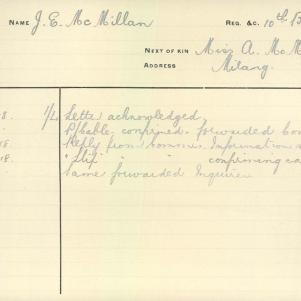 NAME J. E. McMillan REG. &C. 10th B
NEXT OF KIN Miss A. McM
ADDRESS Milang.
8. 1/4 Letter acknowledged,
confirmed. forwarded
18. Reply from Information
18. " " " confirming ca
Same forwarded Inquirer